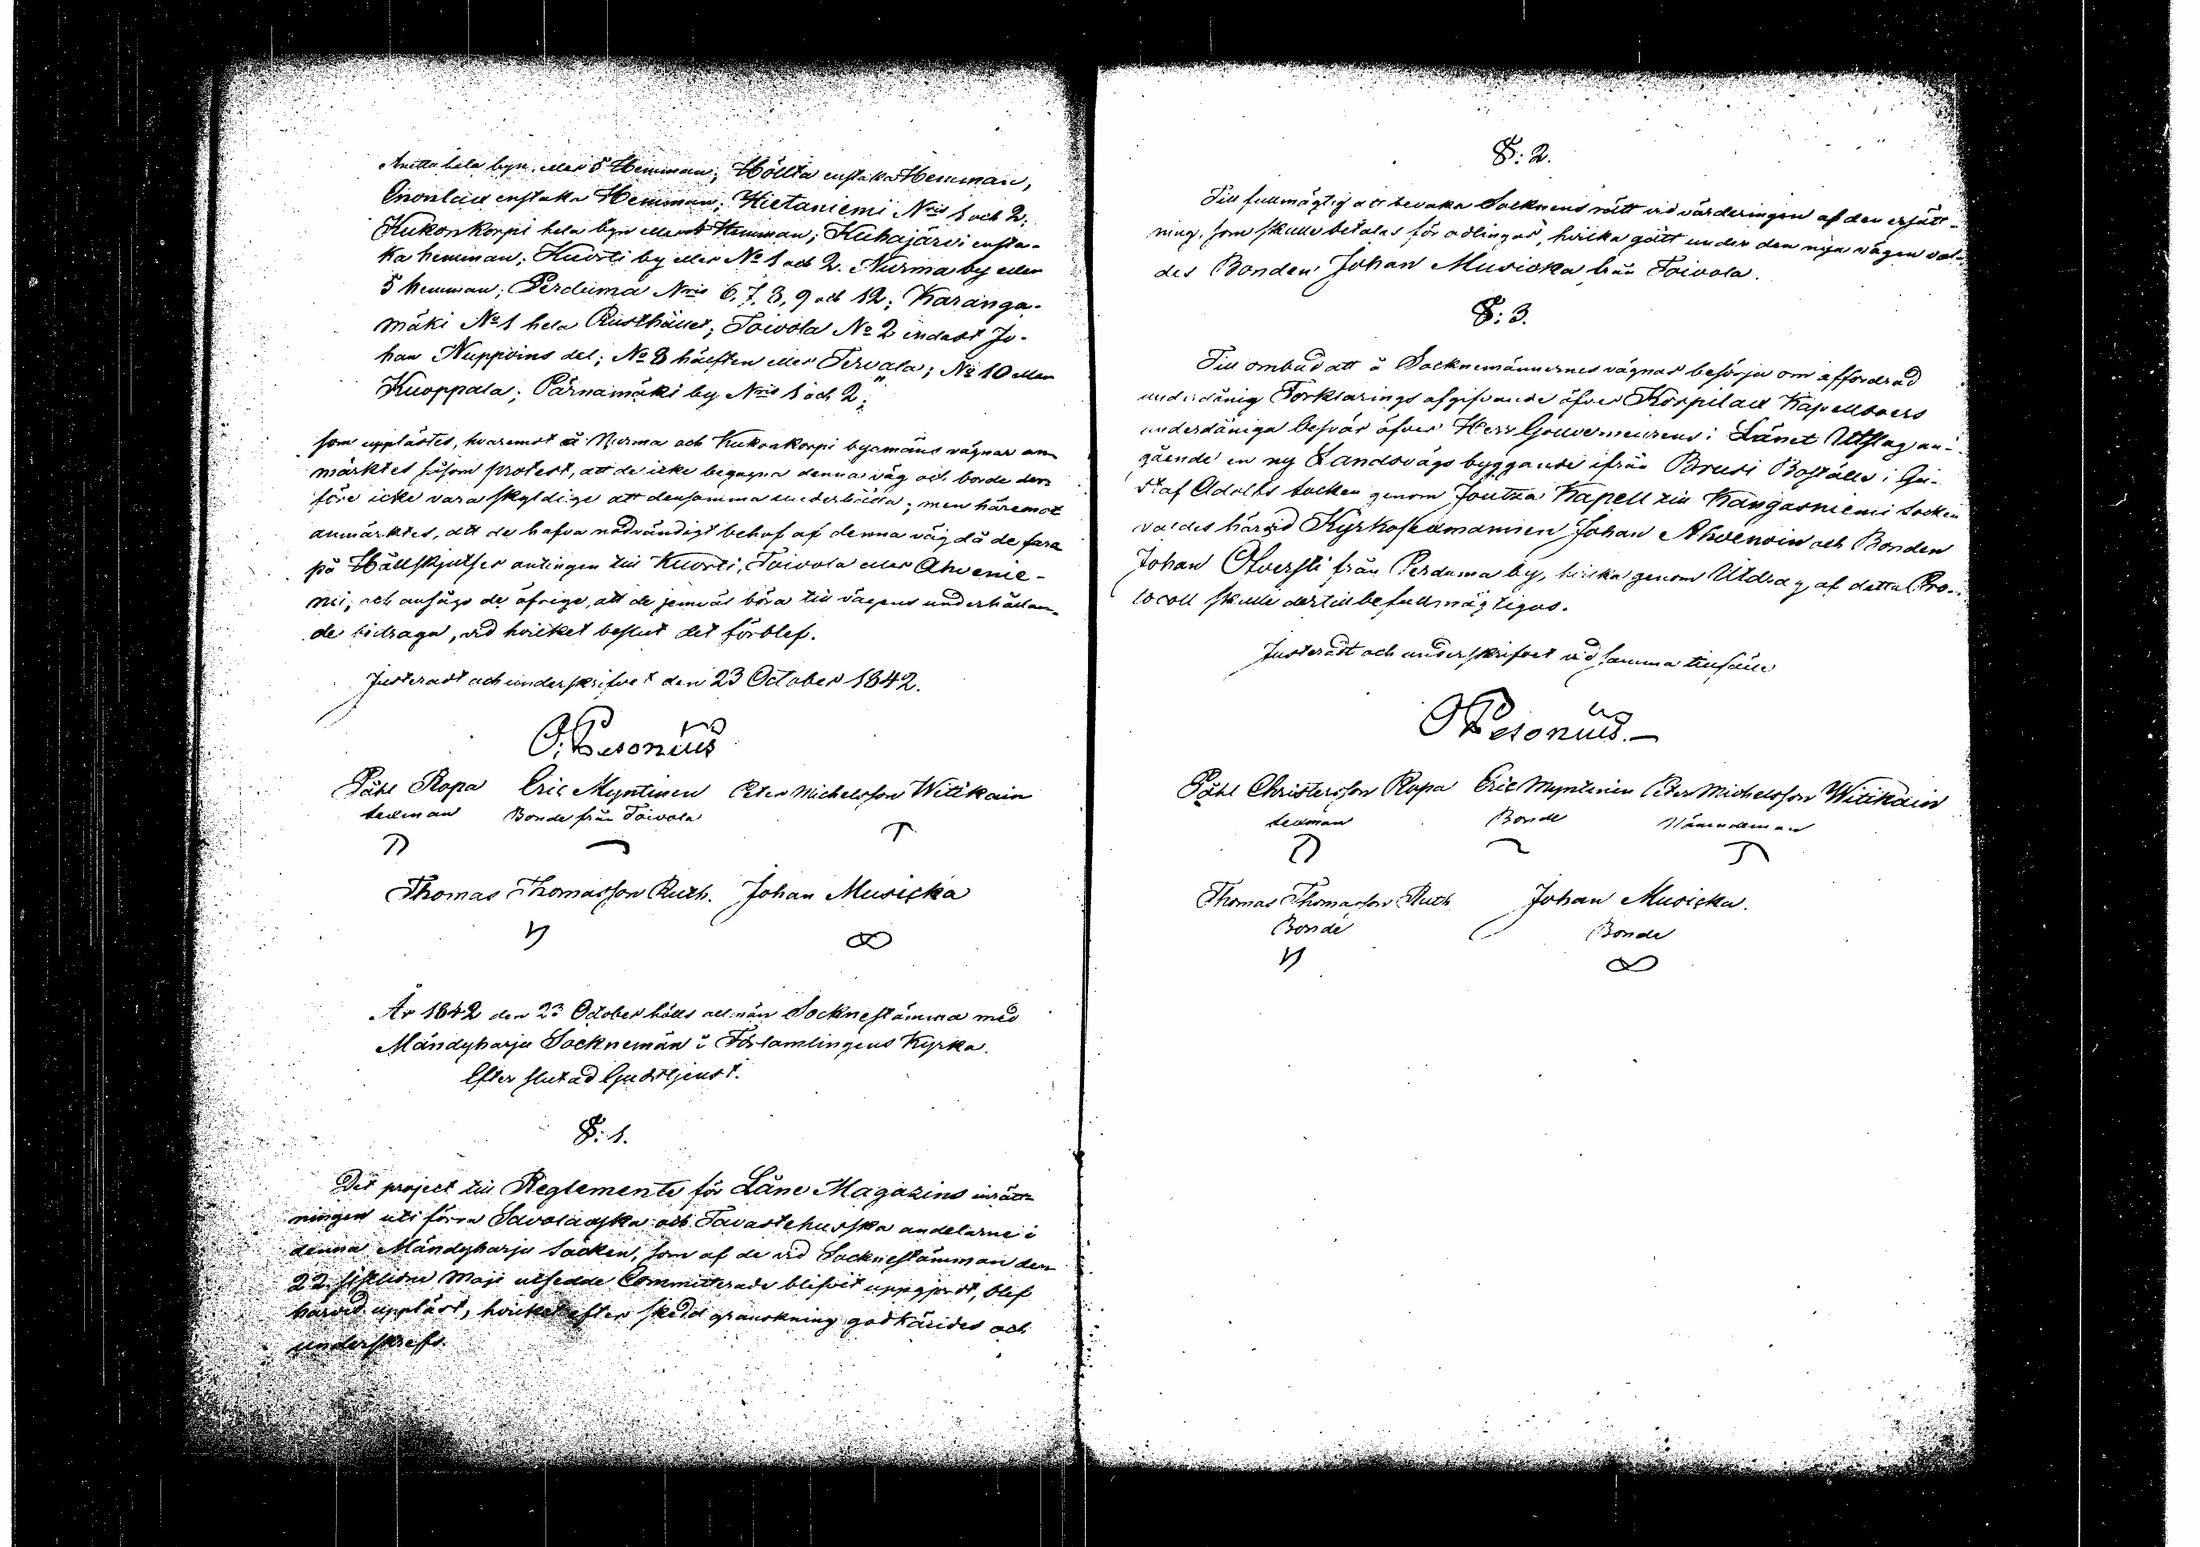 Anetta hela byn eller 5 Hemman; Höltta enstaka Hemman,
enstaka Hemman; Hietaniemi Nris 1 och 2;
Kukonkorpi hela byn eller Hemman; Kuhajärvi ensta-
ka hemman; Kuorti by eller No 1 och 2. Nurma by eller
5 hemman; Perduma Nris 6, 7, 8, 9 och 12; Karanga-
mäki No 1 hela Rusthållet; Toivola No 2 endast Jo-
han Nuppoins del; No 8 hälften eller Tervala; No 10 eller
Kuoppala; Pärnamäki by Nris 1 och 2;"
som upplästes, hvaremot å Nurma och Kukonkorpi byamäns vägnar an-
märktes såsom protest, att de icke begagna denna väg och borde der-
före icke vara skyldige att densamma underhålla; men häremot
anmärktes, att de hafva nödvändigt behof af denna väg då de fara
på Hållskjutser antingen till Kuorti, Toivola eller Ahvenie-
mi; och ansågo de öfrige, att de jemväl böra till vägens underhållan-
de bidraga, vid hvilket beslut det förblef.
Justeradt och underskrifvet den 23 October 1842.
O. Pesonius
Påhl Ropa Eric Myntinen Peter Michelsson Witikain
sexman Bonde från Toivola
Thomas Thomasson Ruth. Johan Musicka
År 1842 den 23 October hölls allmän Socknestämma med
Mändyharju Socknemän i Församlingens Kyrka.
Efter slutad Gudstjenst.
§: 1.
Det project till Reglemente för Låne Magazins inrätt-
ningen uti förra Savolaxska och Tavastehusska andelarne i
denna Mändyharju Socken, som af de vid Socknestämman den
22 sistlidne Maji utsedde Committerade blifvit uppgjordt, blef
härvid uppläst, hvilket efter skedd granskning godkändes och
underskrefs.
§: 2.
Till fullmägtig att bevaka Socknens rätt vid värderingen af den ersätt-
ning, som skulle betalas för odlingar, hvilka gått under den nya vägen val-
des Bonden Johan Musicka från Toivola.
§: 3.
Till ombud att å Socknemännernes vägnar besörja om affordrad
underdånig Förklarings afgifvande öfver Korpilax Kapellboers
underdåniga besvär öfver Herr Gouverneurens i Länet Utslag an-
gående en ny Landsvägs byggande ifrån Brusi Boställe i Gu-
staf Adolfs Socken genom Joutza Kapell till Kangasniemi Socken
valdes härvid Kyrkosexmannen Johan Ahvenoin och Bonden
Johan Olversti från Perduma by, hvilka genom Utdrag af detta Pro-
tocoll skulle dertill befullmägtigas.
Justeradt och underskrifvet vid samma tillfälle
O Pesonius.
Påhl Christersson Ropa Eric Myntinen Peter Michelsson Witikain
sexman Bonde Nämndeman
Thomas Thomasson Ruth Johan Musicka.
Bonde Bonde